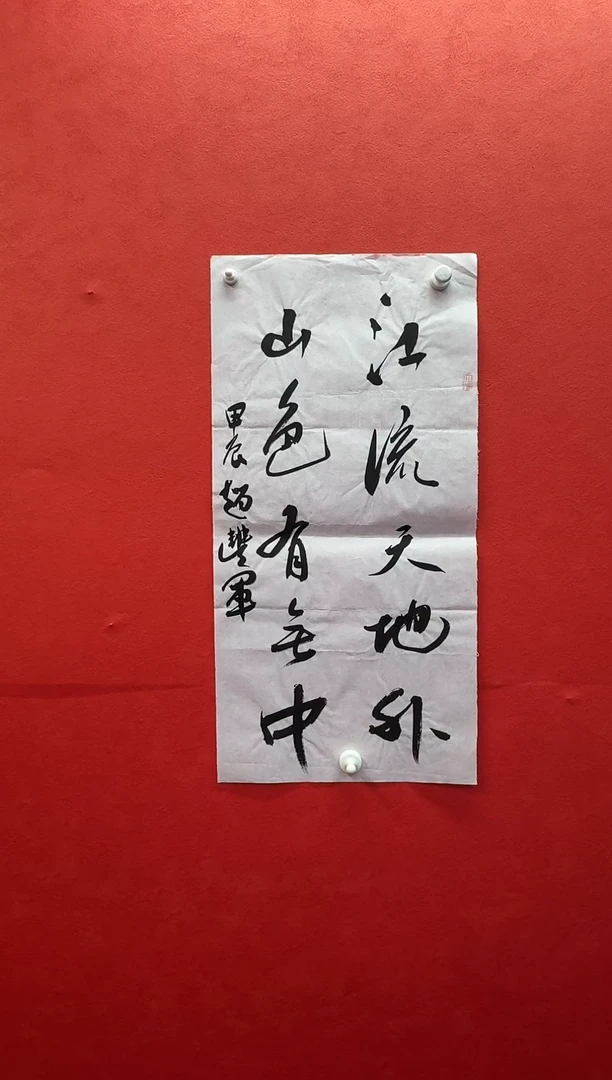 江流天地外
山色有无中
甲辰趙豐軍